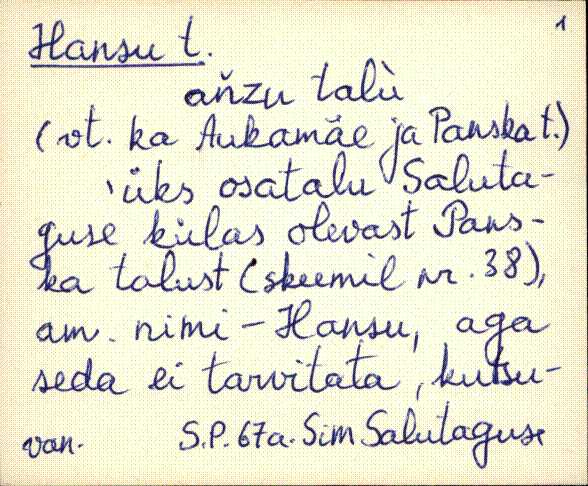 1
Hansu t.
ańzu talù
(vt. ka Aukamäe ja Panska t.)
üks osatalu Saluta-
guse külas olevast Pans-
ka talust (skeemil nr. 38),
am. nimi – Hansu, aga
seda ei tarvitata, kutsu-
van. S.P. 67a. Sim Salutaguse